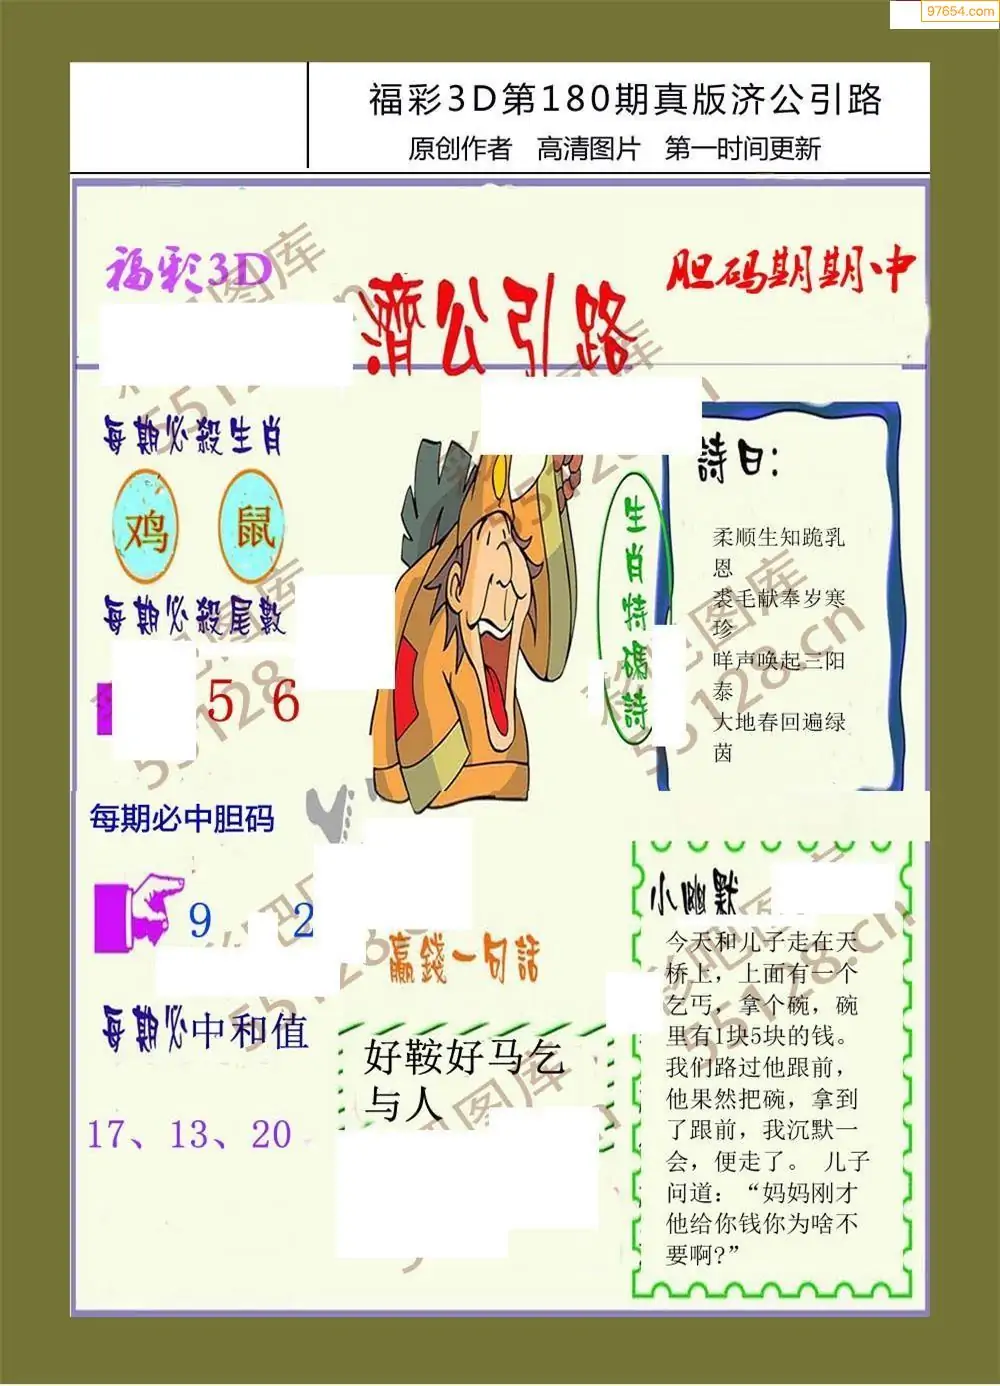 97654.com
福彩3D第180期真版济公引路
原创作者 高清图片 第一时间更新
福彩3D
濟公引路
胆码期期中
每期必殺生肖
鸡 鼠
每期必殺尾數
5 6
每期必中胆码
9 2
每期必中和值
17、13、20
生肖特碼詩
詩曰：
柔顺生知跪乳
恩
裘毛献奉岁寒
珍
咩声唤起三阳
泰
大地春回遍绿
茵
赢錢一句話
好鞍好马乞
与人
小幽默
今天和儿子走在天
桥上，上面有一个
乞丐，拿个碗，碗
里有1块5块的钱。
我们路过他跟前，
他果然把碗，拿到
了跟前，我沉默一
会，便走了。 儿子
问道：“妈妈刚才
他给你钱你为啥不
要啊?”
55128.cn